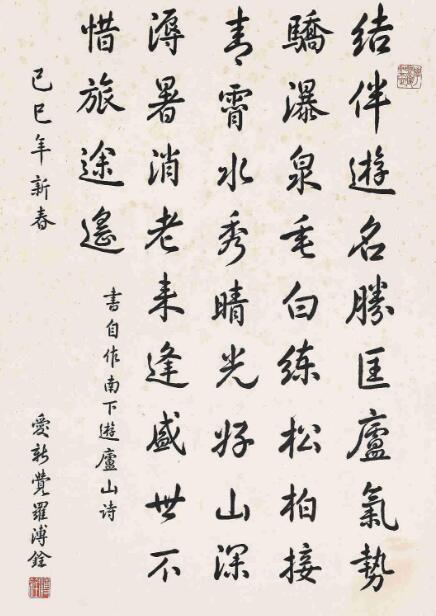 结伴遊名勝匡廬氣勢
驕瀑泉垂白練松柏接
青霄水秀晴光好山深
溽暑消老来逢盛世不
惜旅途遙
書自作南下遊廬山诗
己巳年新春
愛新覺羅溥銓